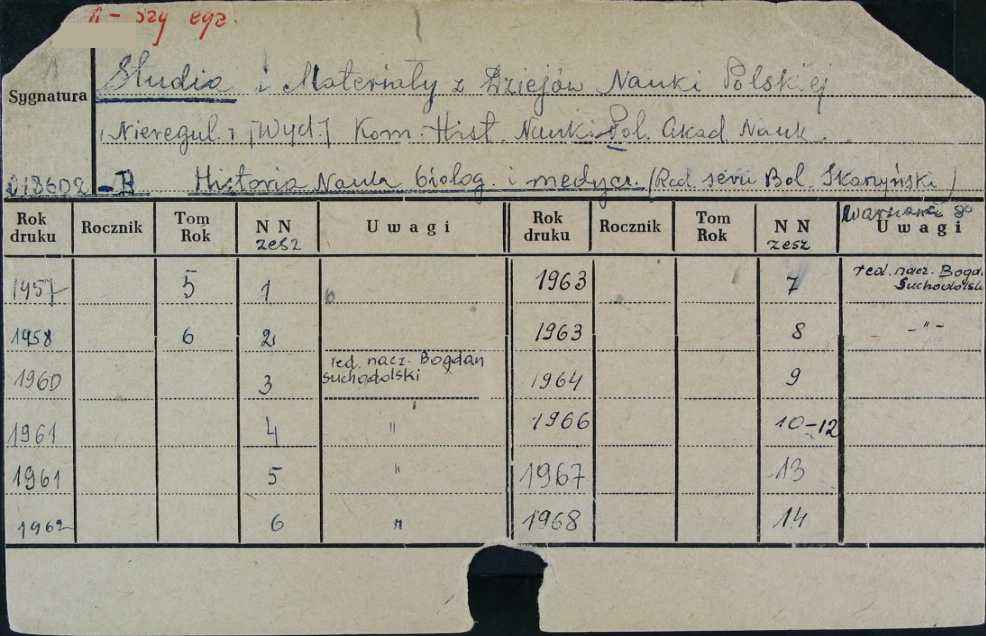 n-szy egz.
Studia i Materiały z Dziejów Nauki Polskiej
Sygnatura
Nieregul. [Wyd.] Kom. Hist. Nauk. Pol. Akad. Nauk.
218602 - B Historia Nauk biolog. i medycz. (Red. serii Bol. Skarżyński)
Warszawa 8°
Rok druku Rocznik Tom Rok N N zesz Uwagi Rok druku Rocznik Tom Rok N N zesz Uwagi
1957 5 1 1963 7 red. nacz. Bogd. Suchodolski
1958 6 2 1963 8 -"-
1960 3 red. nacz. Bogdan Suchodolski 1964 9
1961 4 " 1966 10-12
1961 5 " 1967 13
1962 6 " 1968 14